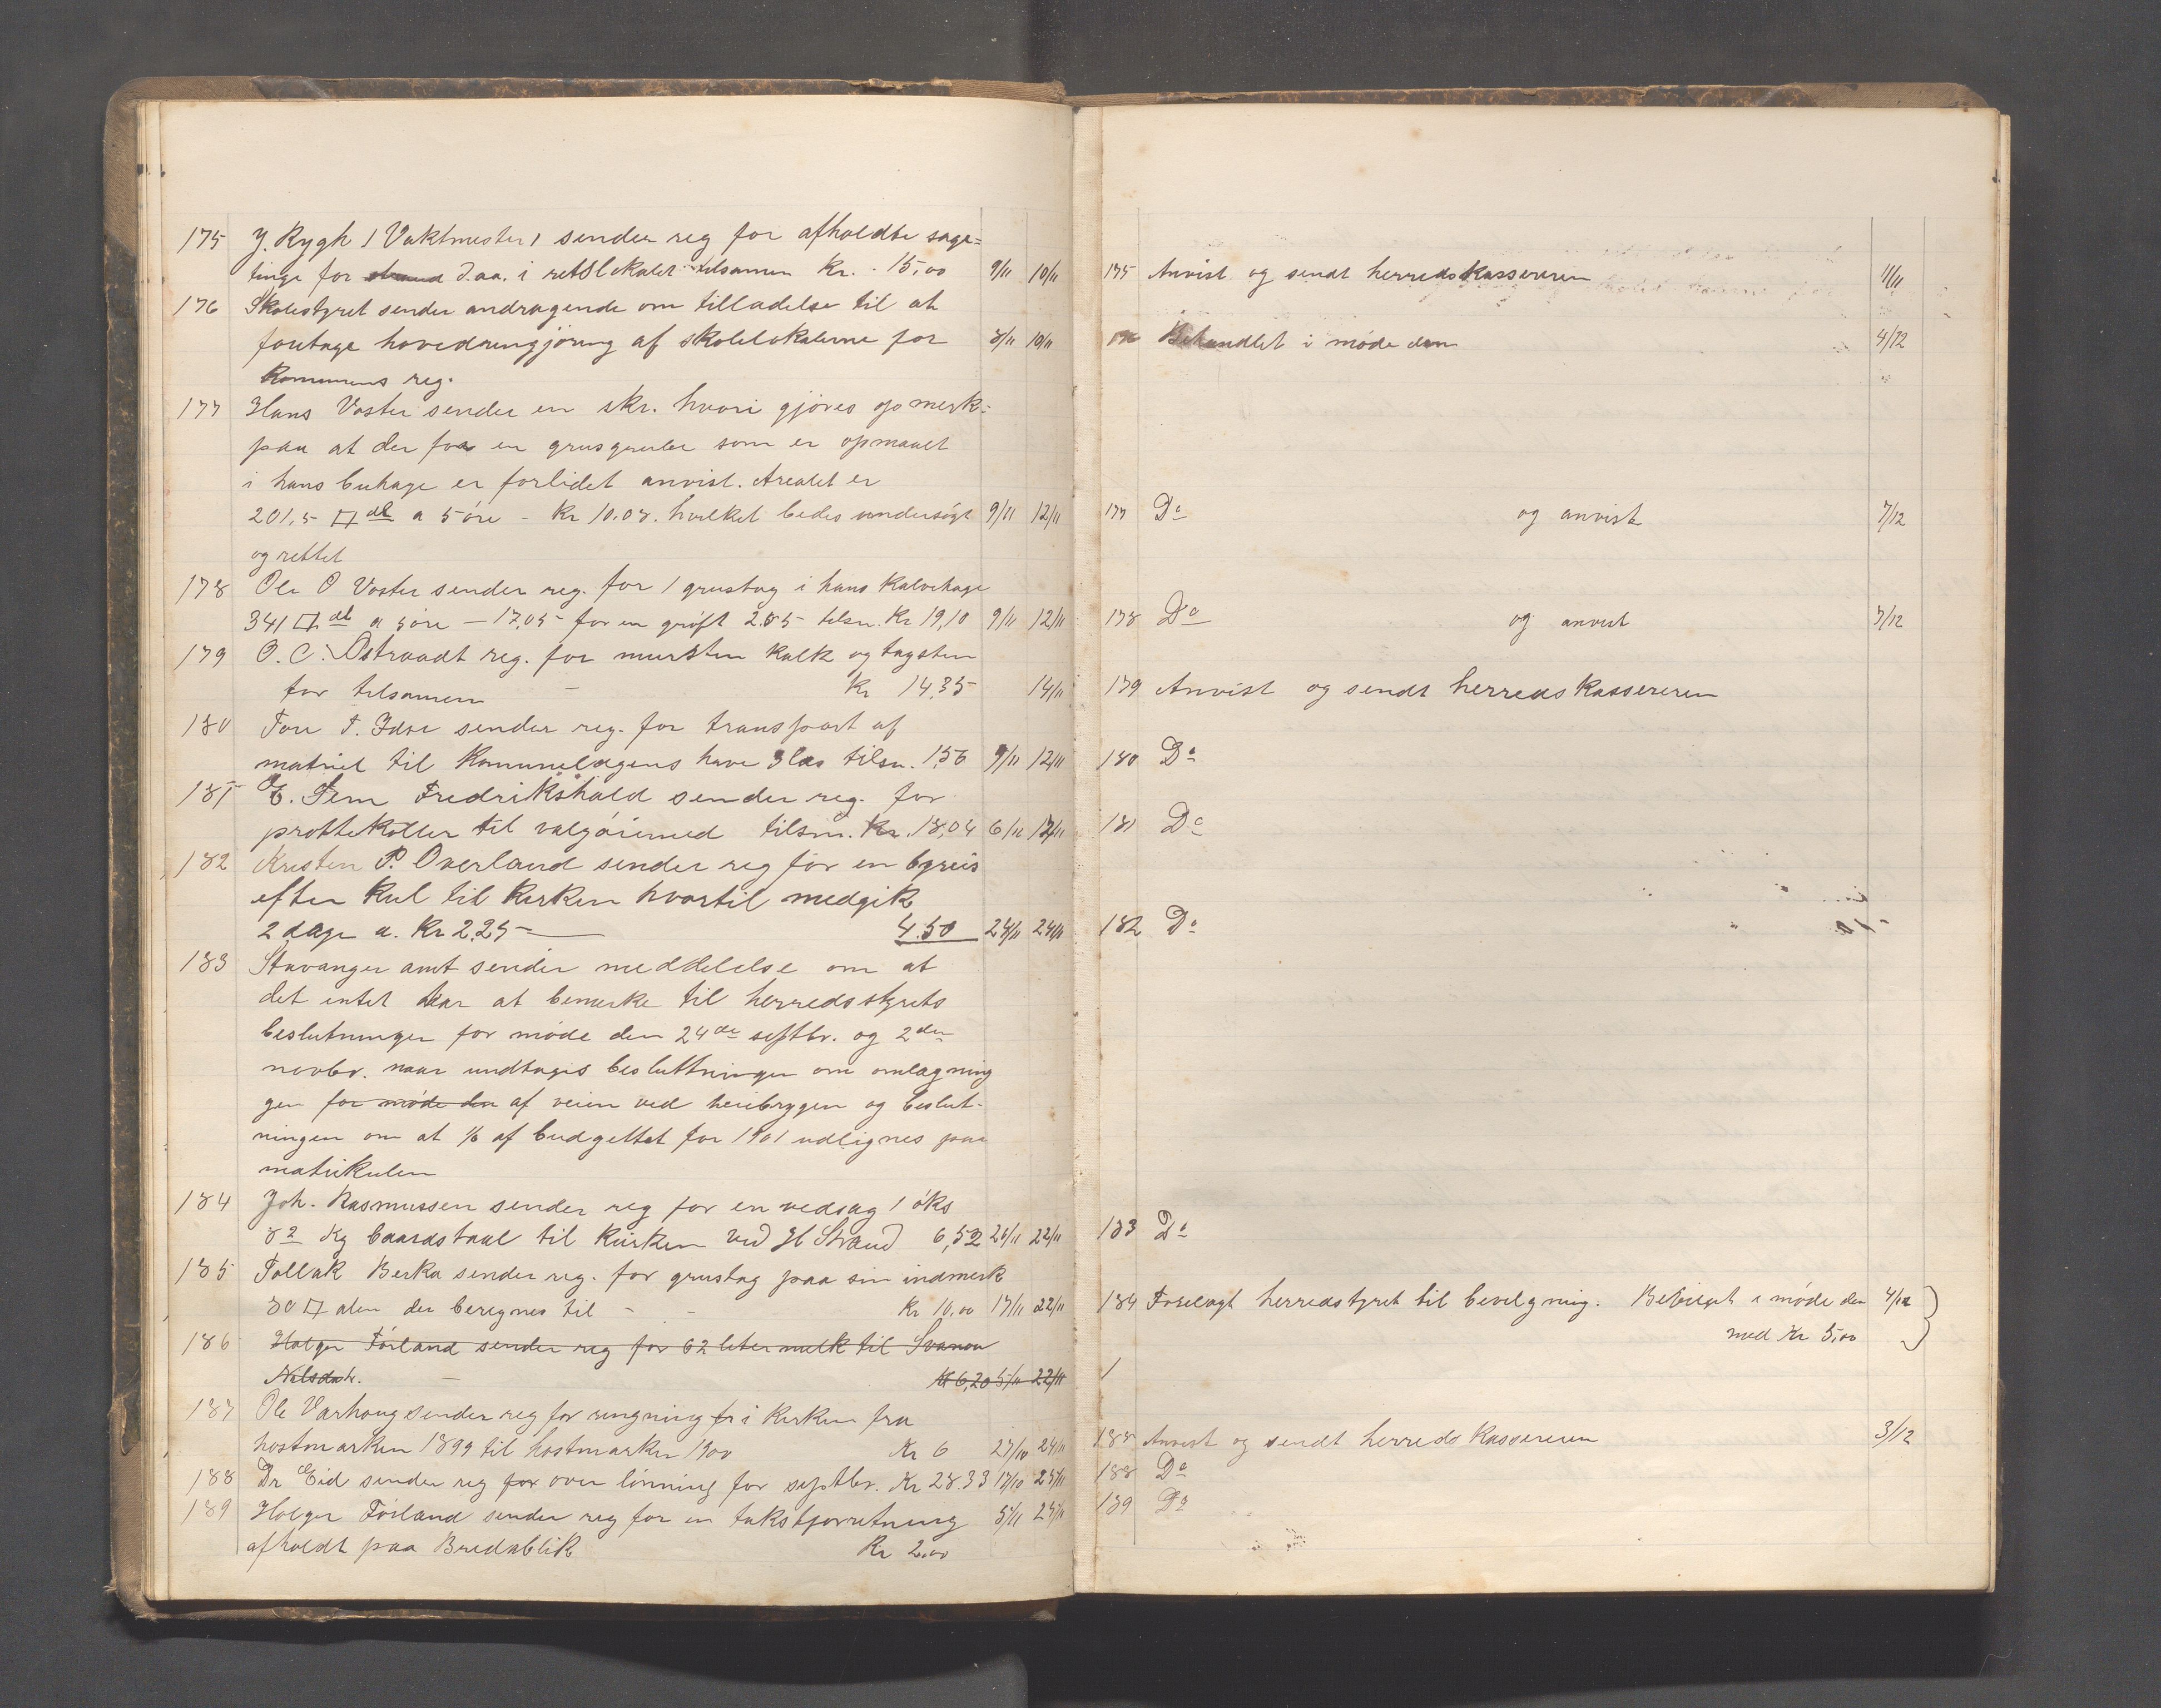 175 J. Rygh / Vaktmester / sender reg for afholdte sage=
tinge for d.aa. i retslokalet tilsamen Kr. 15,00 9/11 10/11
176 Skolestyret sender andragende om tilladelse til at
foretage hovedrengjøring af skolelokalerne for 8/11 10/11
Kommunens reg.
177 Hans Voster sender en skr. hvori gjøres opmerk=
paa at der for en grusgrube som er opmaalt
i hans buhage er forlidet anvist. Arealet er
201,5 □ al a 5 øre - Kr 10.08. hvilket bedes undersøgt 9/11 12/11
og rettet
178 Ole O Voster sender reg. for 1 grustag i hans Kalvehage
341 □ al a 5 øre - 17,05 for en grøft 2.05 tilsn. Kr 19,10 9/11 12/11
179 O. C. Østraadt reg. for mursten kalk og tagsten
for tilsamen - Kr 14,35 14/11
180 Tore T. Idse sender reg. for transport af
matriel til Kommunelægens have 3 læs tilsn. 1,56 9/11 12/11
181 E. Sem Fredrikshald sender reg. for
prottekoller til valgøiemed tilsm. Kr. 18,04 6/11 12/11
182 Kristen P. Overland sender reg for en byreis
efter Kul til Kirken hvortil medgik
2 dage a. Kr 2,25 — 4.50 24/11 24/11
183 Stavanger amt sender meddelelse om at
det intet har at bemerke til herredsstyrets
beslutninger for møde den 24de septbr. og 2den
novbr. naar undtages besluttninger om omlægning
gen for møde den af veien ved heibrygen og beslut-
ningen om at 1/6 af budgettet for 1901 udlignes paa
matrikulen
184 Joh. Rasmussen sender reg for en vedsag 1 øks
Kg baandstaal til Kirken ved Hl Strand 6,52 26/11 22/11
185 Tollak Berka sender reg. for grustag paa sin indmerk
80 □ alen der beregnes til - - Kr 10,00 17/11 22/11
186 Holger Førland sender reg for 62 liter melk til Svanou
Nilsdatr. - Kr 6,20 5/11 22/11
187 Ole Varhoug sender reg for ringning i Kirken fra
høstmarken 1899 til høstmarken 1900 Kr 6 27/10 24/11
188 Dr Eid sender reg for over lønning for septbr. Kr 28.33 17/10 24/11
189 Holger Førland sender reg for en takstforretning 5/11 24/11
afholdt paa Bredablik Kr 2.00
175 Anvist og sendt herredskassereren 11/11
Behandlet i møde den 4/12
177 Do og anvist 7/12
178 Do og anvist 7/12
179 Anvist og sendt herredskassereren
180 Do
181 Do
182 Do
183 Do
184 Forelagt herredstyret til bevilgning. Bevilget i møde den 4/12
med Kr 5,00
1
187 Anvist og sendt herredskassereren 3/12
188 Do
189 Do